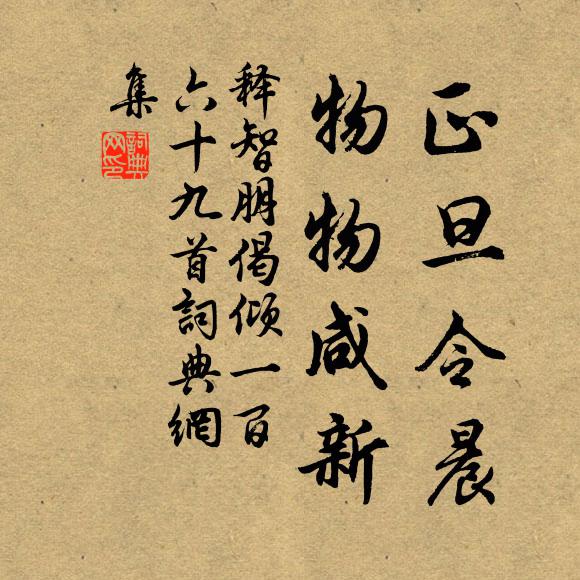 正旦令晨
物物咸新
释智朋偈倾一百
六十九首詞典網
集
詞典網印